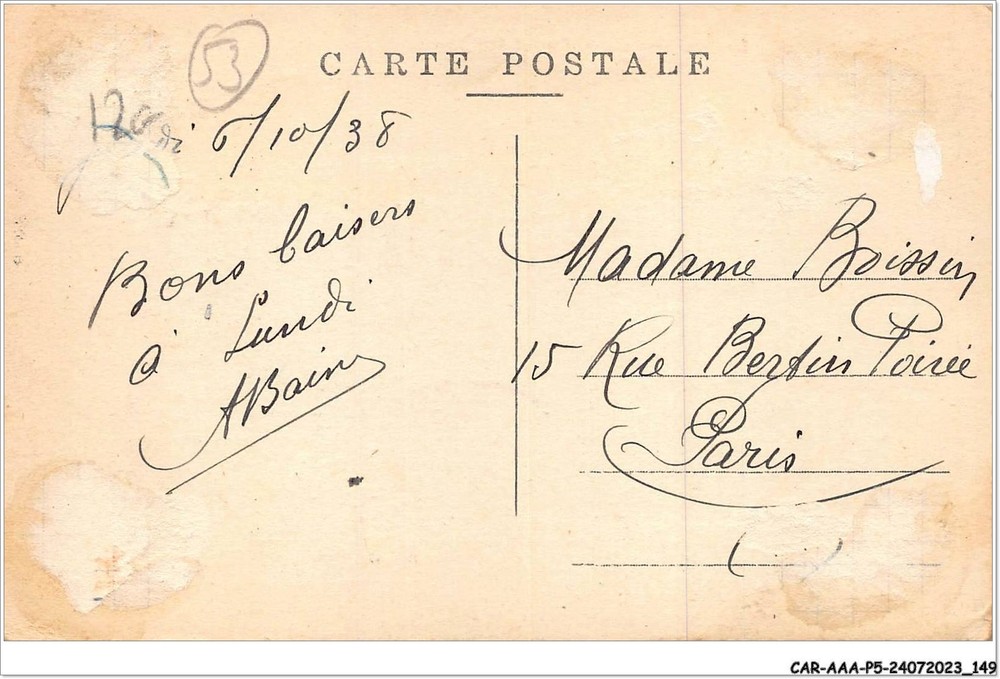 CARTE POSTALE
53
6/10/38
Bons baisers
à Lundi
ABain
Madame Boissin
15 Rue Bertin Poirée
Paris
CAR-AAA-P5-24072023_149